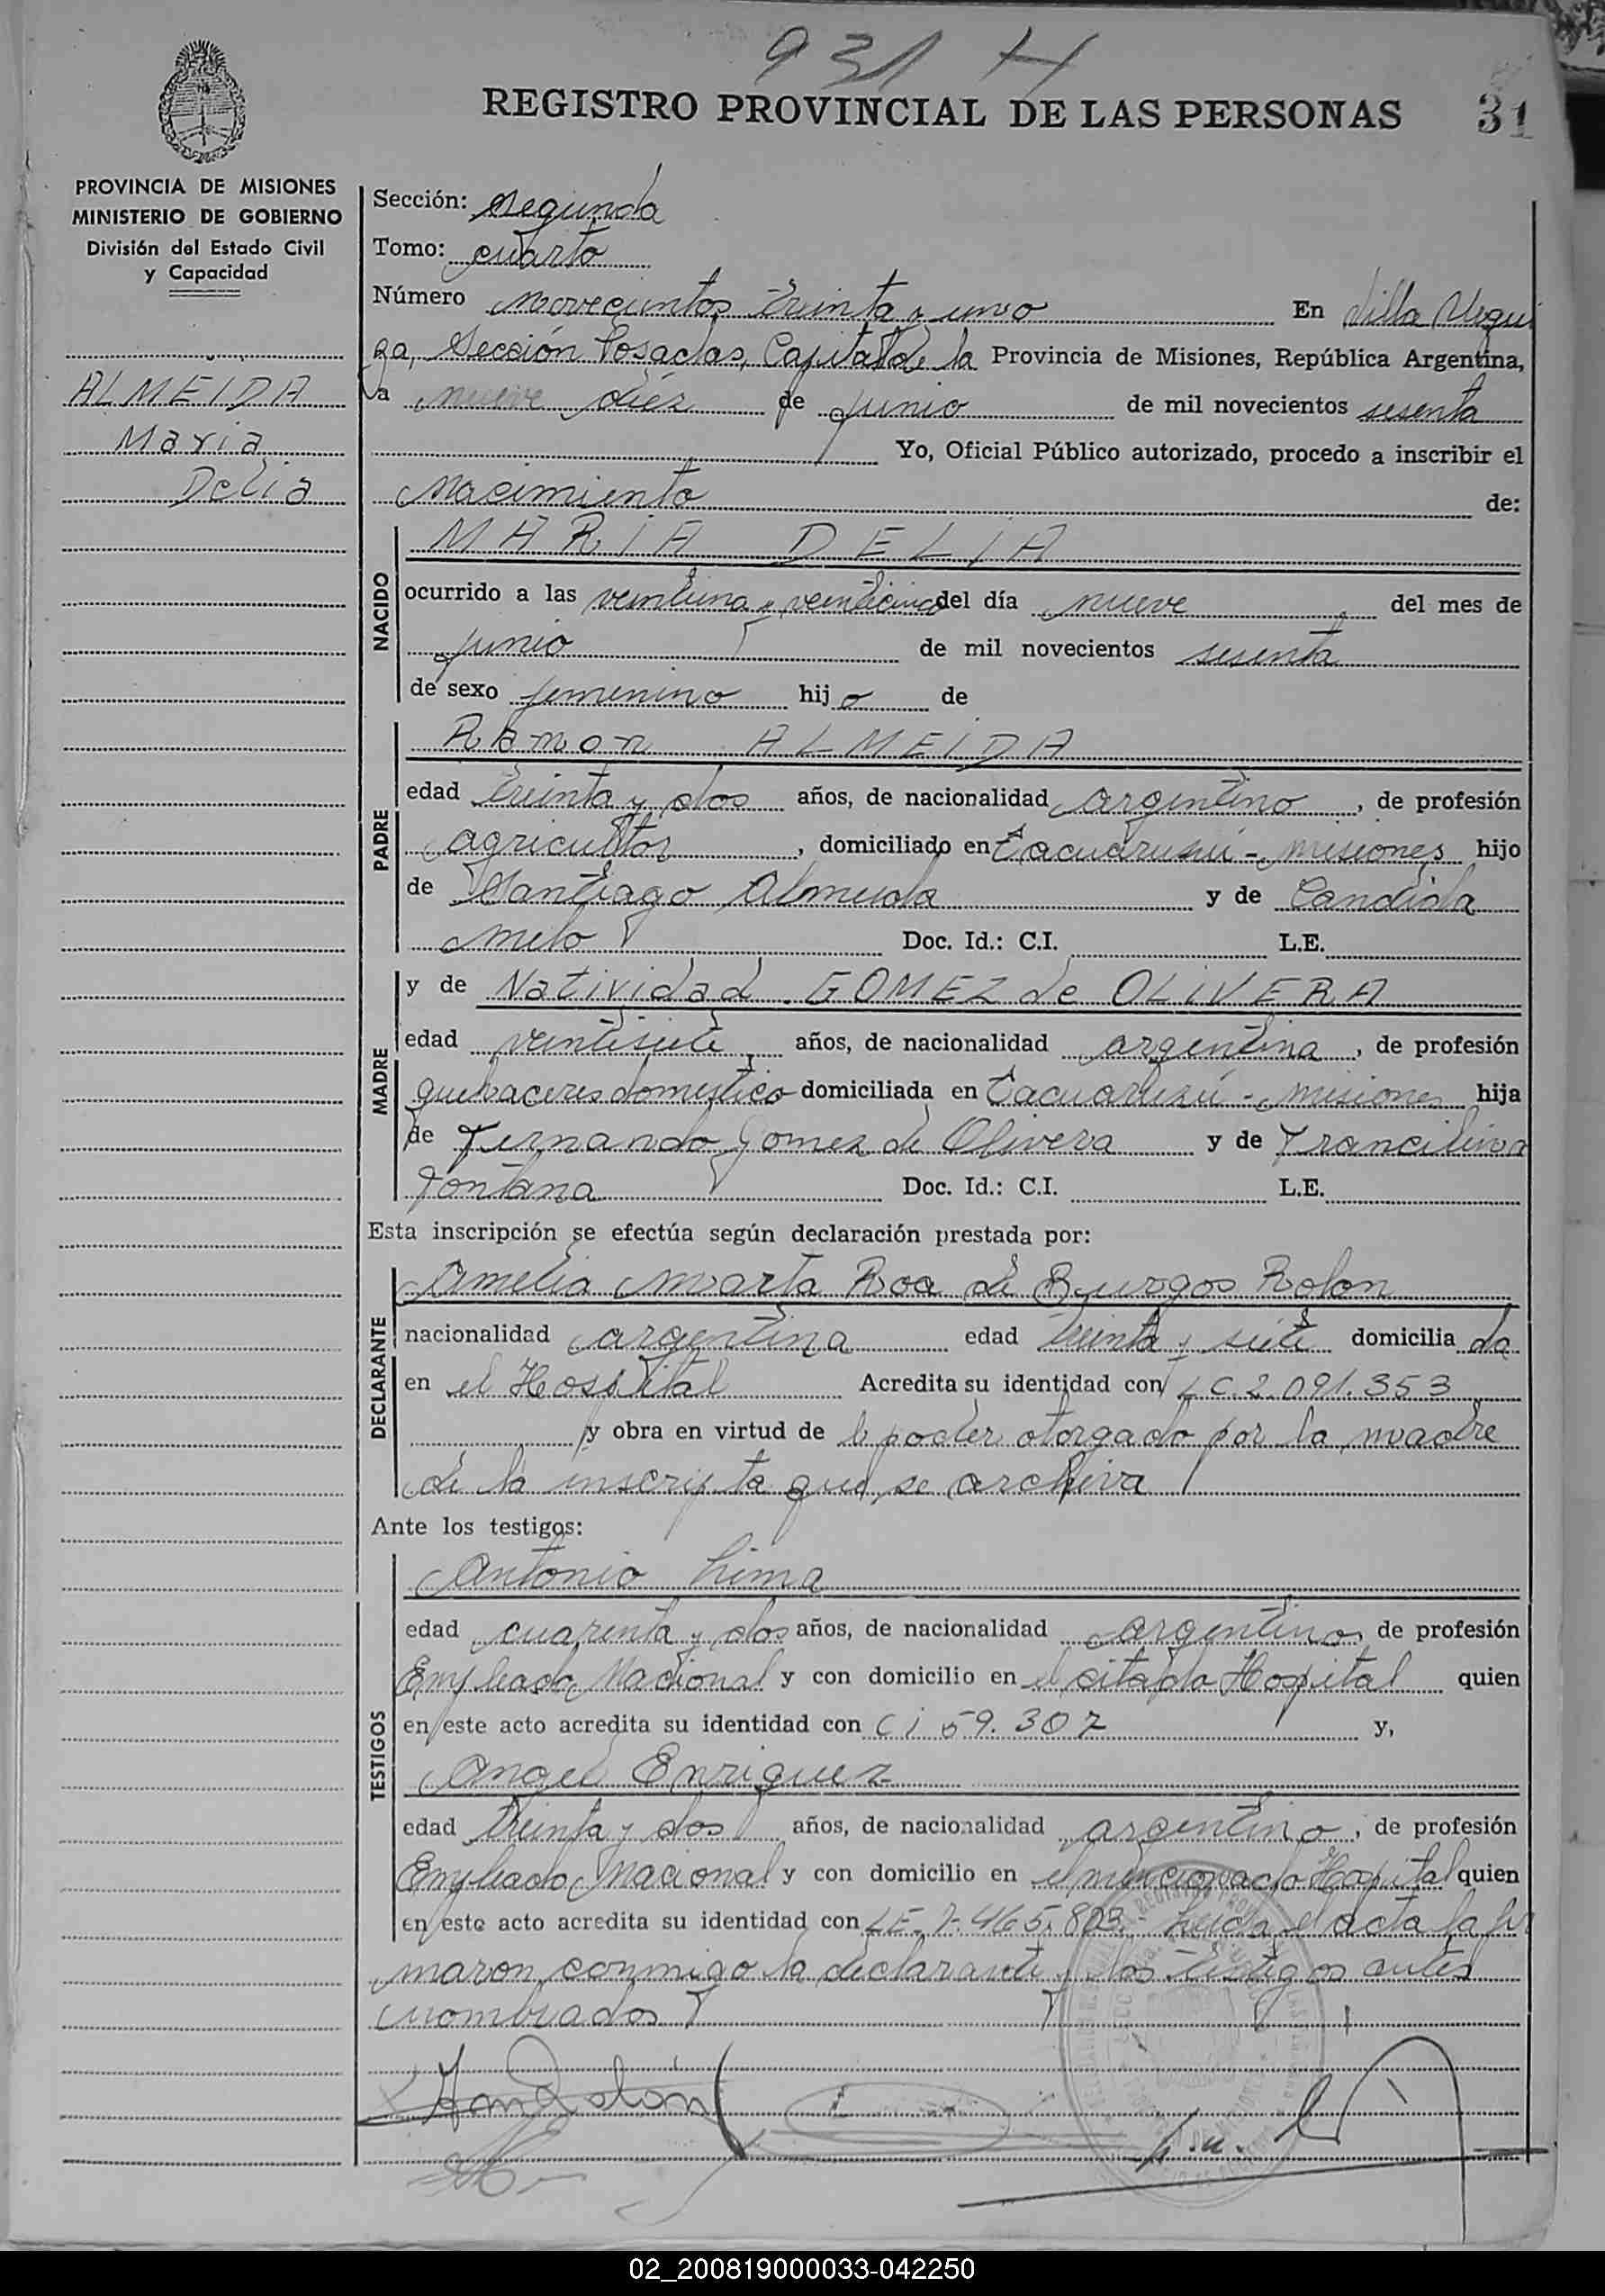 931 H
REGISTRO PROVINCIAL DE LAS PERSONAS 31
PROVINCIA DE MISIONES
MINISTERIO DE GOBIERNO
División del Estado Civil
y Capacidad
ALMEIDA
Maria
Delia
Sección: segunda
Tomo: cuarto
Número novecientos treinta y uno En Villa Urqui
za, Sección Posadas, Capital de la Provincia de Misiones, República Argentina,
a nueve diez de junio de mil novecientos sesenta
Yo, Oficial Público autorizado, procedo a inscribir el
Nacimiento de:
NACIDO
MARIA DELIA
ocurrido a las veintiuna y veinticinco del día nueve del mes de
junio de mil novecientos sesenta
de sexo femenino hijo de
PADRE
Ramon ALMEIDA
edad treinta y dos años, de nacionalidad argentino, de profesión
agricultor, domiciliado en Tacuaruzú - misiones hijo
de Santiago Almeida y de Candida
Melo Doc. Id.: C.I. L.E.
MADRE
y de Natividad GOMEZ de OLIVERA
edad veintisiete años, de nacionalidad argentina, de profesión
quehaceres domestico domiciliada en Tacuaruzú - misiones hija
de Fernando Gomez de Olivera y de
Fontana Doc. Id.: C.I. L.E.
Esta inscripción se efectúa según declaración prestada por:
DECLARANTE
Amelia Marta Roa de Burgos Rolon
nacionalidad argentina edad treinta y siete domiciliada
en el Hospital Acredita su identidad con LC.2.091.353
y obra en virtud de poder otorgado por la madre
de la inscripta que se archiva
Ante los testigos:
TESTIGOS
Antonio Lima
edad cuarenta y dos años, de nacionalidad argentino de profesión
Empleado Nacional y con domicilio en el citado Hospital quien
en este acto acredita su identidad con Ci 59.307 y,
Angel Enriquez
edad treinta y dos años, de nacionalidad argentino, de profesión
Empleado Nacional y con domicilio en el mencionado Hospital quien
en este acto acredita su identidad con LE. 7.465.803.- Leida el acta la fir
maron conmigo la declarante y los testigos antes
nombrados
02_200819000033-042250